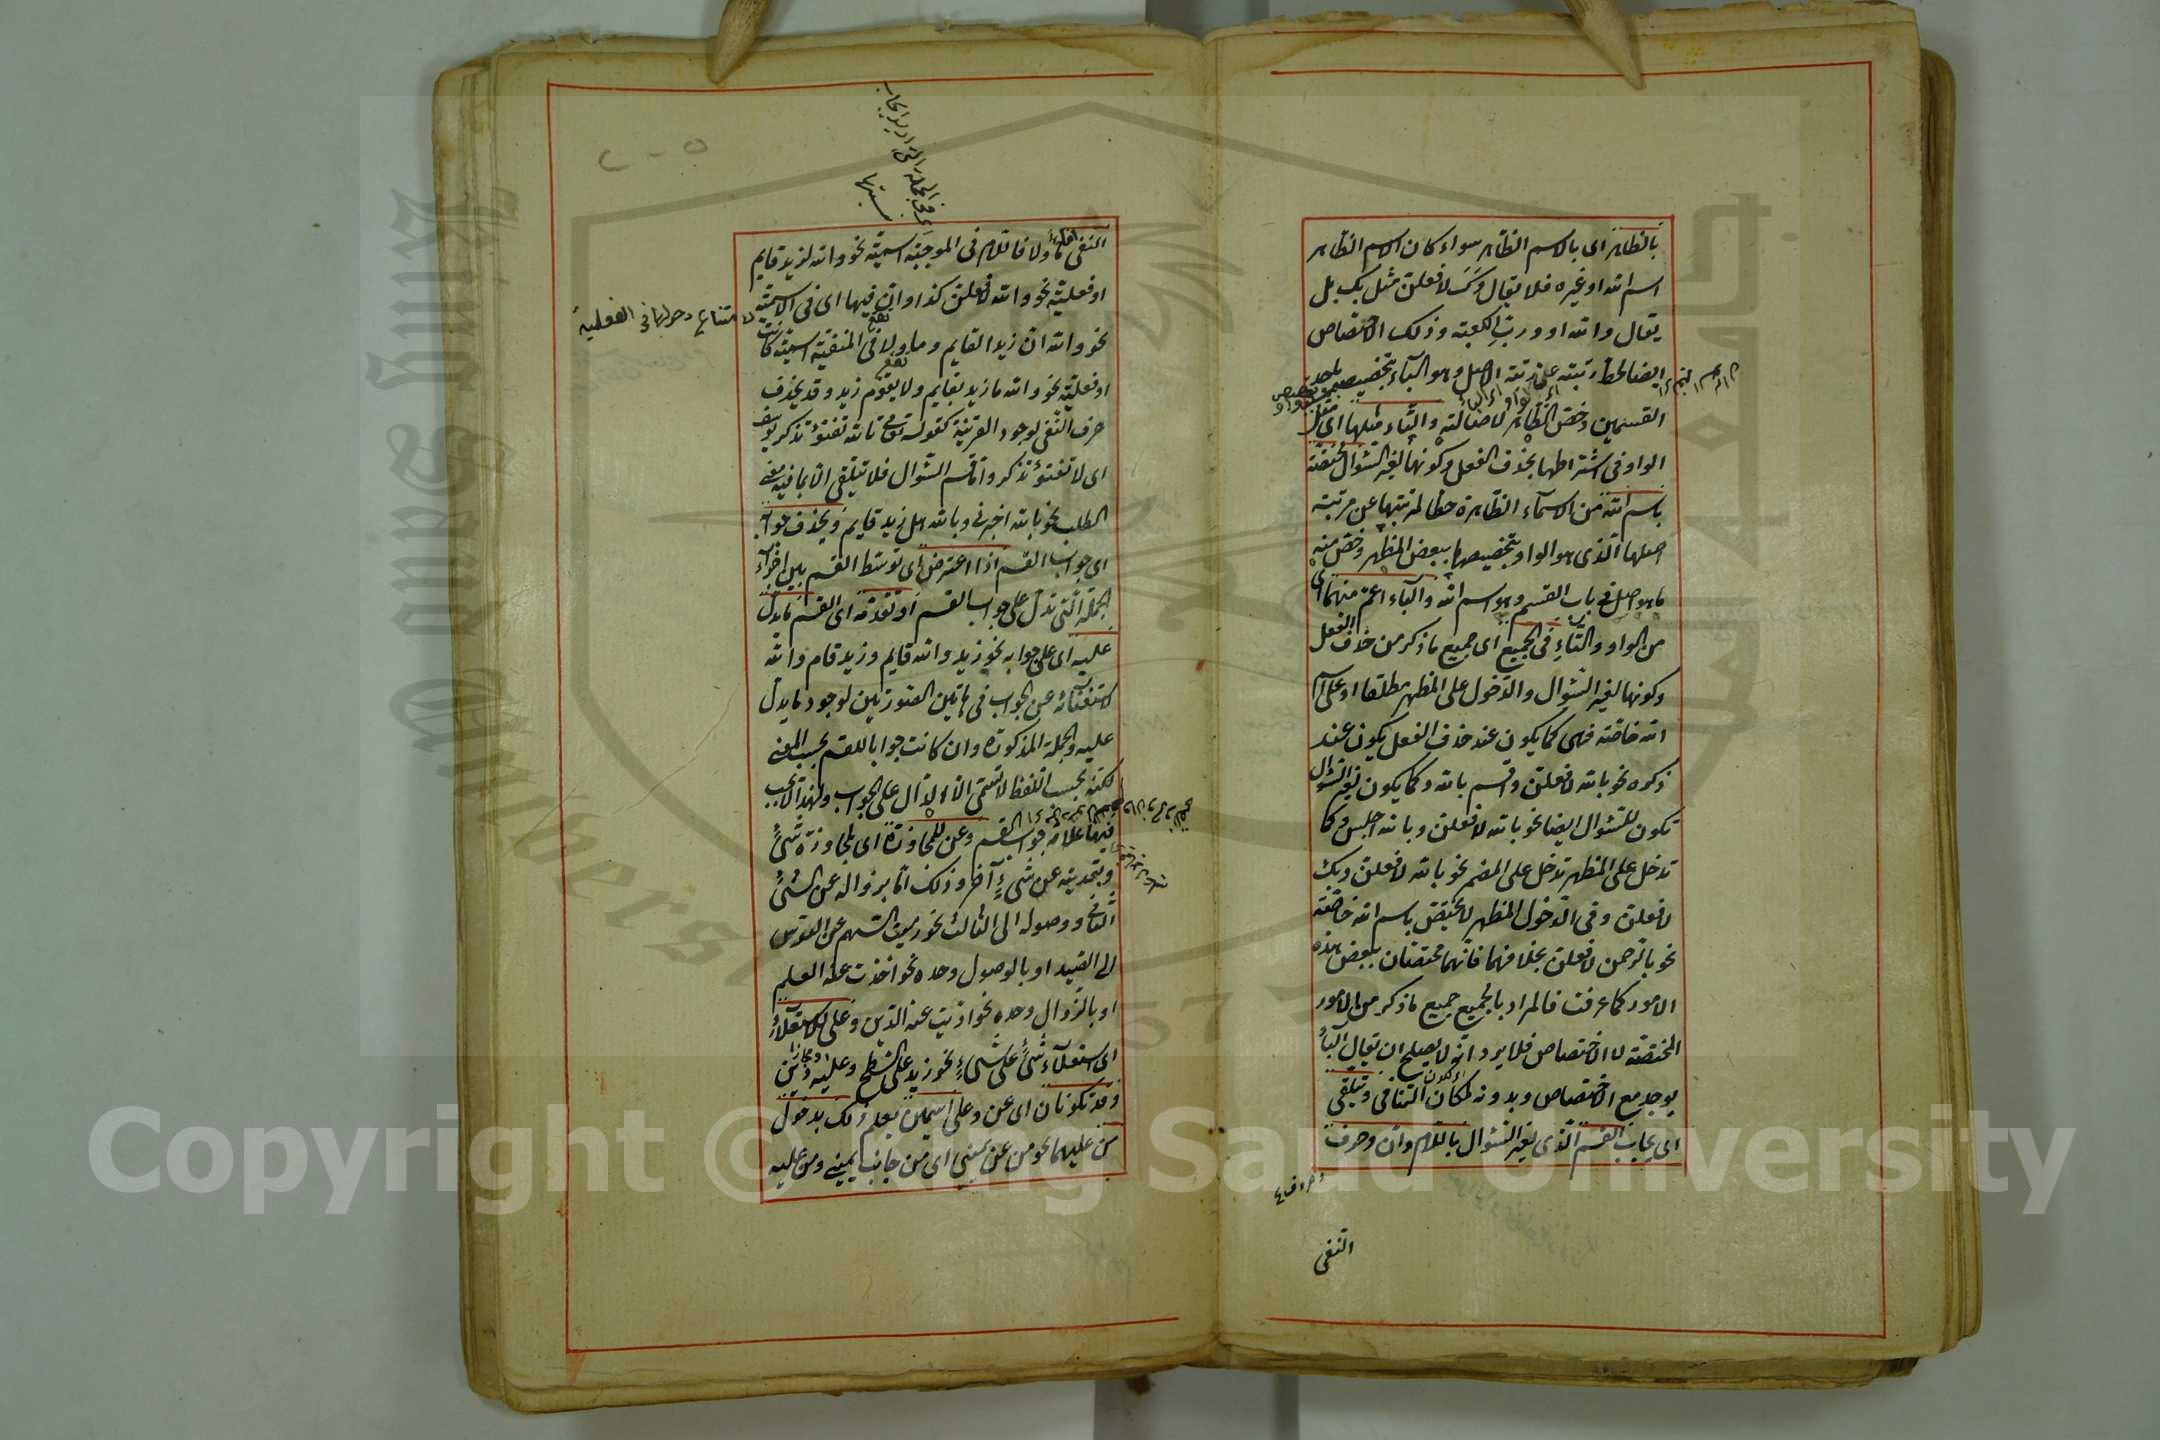 بالظاهر اى بالاسم الظاهر سواء كان الاسم الظاهر
اسم الله او غيره فلا يقال وك لافعلن مثل بك بل
يقال والله او ورب الكعبة وذلك الاختصاص
ايضا لحط رتبته عن رتبة الاصل وهو الباء بتخصيصه باحد
القسمين وخص الظاهر لاصالته والتاء مثلها اى مثل
الواو فى اشتراطها بحذف الفعل وكونها لغير السؤال مختصة
باسم الله من الاسماء الظاهرة حطا لمرتبتها عن مرتبة
اصلها الذى هو الواو بتخصيصها ببعض المظهر وخص منه
ما هو اصل فى باب القسم وهو اسم الله والباء اعم منهما اى
من الواو والتاء فى الجميع اى جميع ما ذكر من حذف الفعل
وكونها لغير السؤال والدخول على المظهر مطلقا او على اسم
الله خاصة فهى كما يكون عند حذف الفعل يكون عند
ذكره نحو بالله لافعلن واقسم بالله وكما يكون لغير السؤال
تكون للسؤال ايضا نحو بالله لافعلن وبالله اجلس وكما
تدخل على المظهر تدخل على المضمر نحو بالله لافعلن وبك
لافعلن وفى الدخول المظهر لا يختص باسم الله خاصة
نحو بالرحمن لافعلن بخلافهما فانهما مختصتان ببعض هذه
الامور كما عرفت فالمراد بالجميع جميع ما ذكر من الامور
المختصة لا الاختصاص فلا يرد انه لا يصلح ان يقال الباء
يوجد مع الاختصاص وبدونه لمكان التنافى ويتلقى
اى يجاب القسم الذى لغير السؤال باللام وان وحرف
النفى
النفى ما ولا فاللام فى الموجبة اسمية نحو والله لزيد قايم
او فعلية نحو والله لافعلن كذا وان فيها اى فى الاسمية
نحو والله ان زيدا لقايم وما ولا فى المنفية اسمية كانت
او فعلية نحو والله ما زيد بقايم ولا يقوم زيد وقد يحذف
حرف النفى لوجود القرينة كقوله تعالى تالله تفتؤ تذكر يوسف
اى لا تفتؤ تذكر واما قسم السؤال فلا يتلقى الا بما فيه معنى
الطلب نحو بالله اخبرنى وبالله هل زيد قايم ويحذف جوابه
اى جواب القسم اذا اعترض اى توسط القسم بين اجزاء
الجملة التى تدل على جواب القسم او تقدمه اى القسم ما يدل
عليه اى على جوابه نحو زيد والله قايم وزيد قام والله
لاستغنائه عن الجواب فى هاتين الصورتين لوجود ما يدل
عليه والجملة المذكورة وان كانت جوابا للقسم بحسب المعنى
لكنه بحسب اللفظ لا تسمى الا الدال على الجواب ولهذا لا يجب
فيها علامة جواب القسم وعن للمجاوزة اى لمجاوزة شىء
وبتعديته عن شىء آخر وذلك اما بزواله عن الشىء
الثانى ووصوله الى الثالث نحو رميت السهم عن القوس
الى الصيد او بالوصول وحده نحو اخذت عنه العلم
او بالزوال وحده نحو اديت عنه الدين وعلى للاستعلاء
اى استعلاء شىء على شىء نحو زيد على السطح وعليه دين
وقد تكونان اى عن وعلى اسمين يعلم ذلك بدخول
من عليهما نحو من عن يمينى اى من جانب يمينى ومن عليه
Copyright © King Saud University
King Saud University
1957